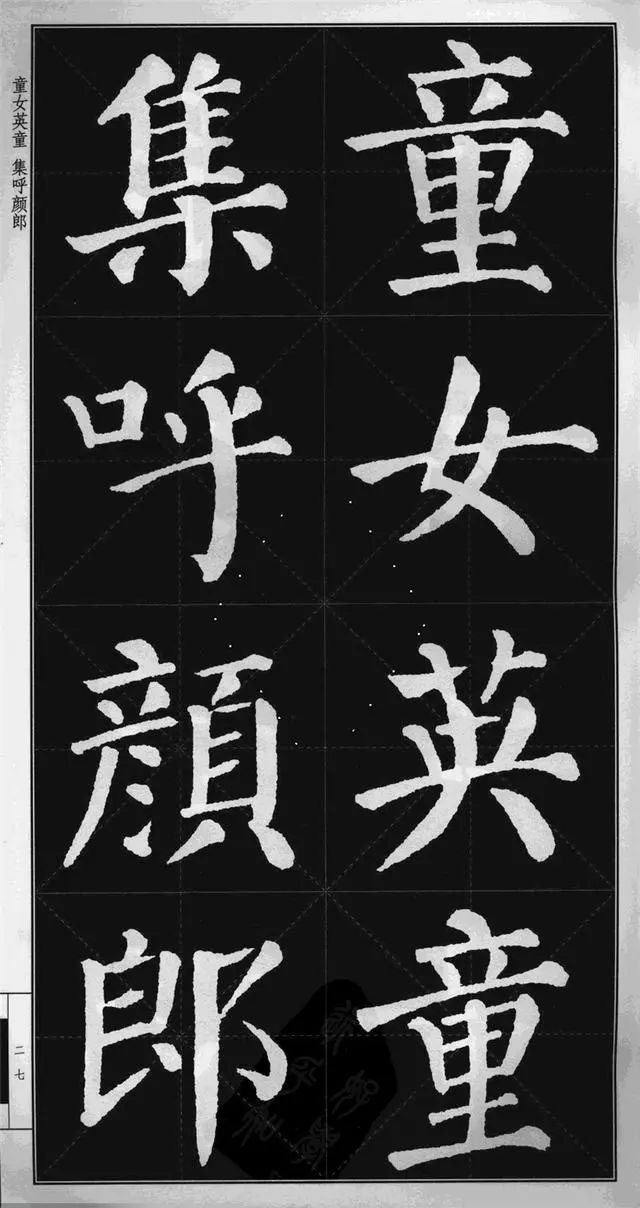 童女英童
集呼顏郎
童女英童 集呼颜郎
二七